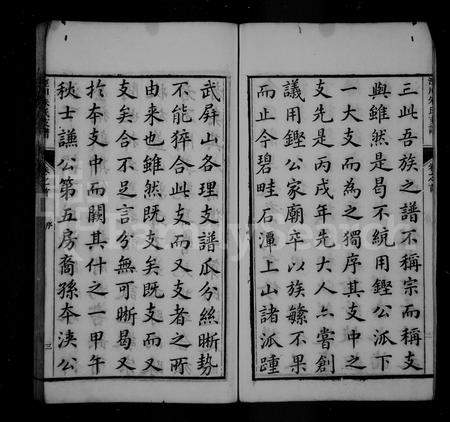 三此吾族之譜不稱宗而稱支
與雖然是曷不統用鏗公派下
一大支而為之獨序其支中之
支先是丙戌年先大人亦嘗創
議用鏗公家廟卒以族蘩不果
而止今碧畦石潭上山諸派踵
武屏山各理支譜瓜分絲晰勢
不能猝合此支而又支者之所
由来也雖然既支矣既支而又
支矣合不足言分無可晰曷又
於本支中而闕其什之一甲午
秋士謙公第五房裔孫本浹公
序
三